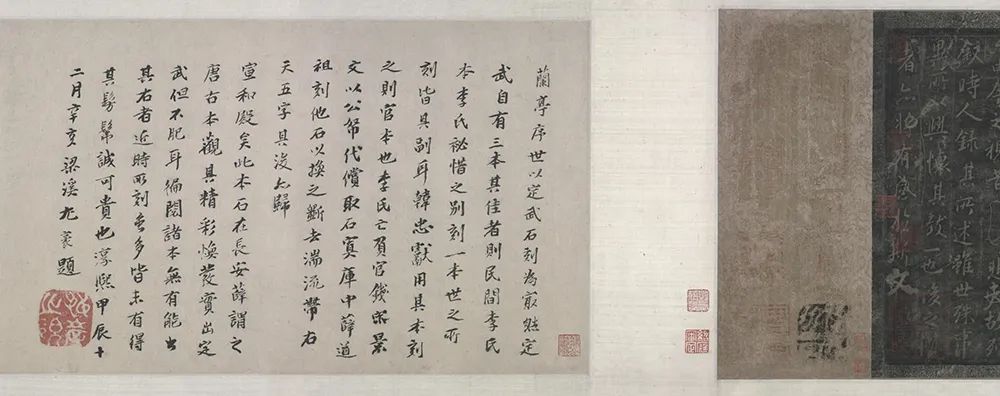 叙時人錄其所述雖世殊事
興懷其致一也後之
者亦將有感於斯文
蘭亭序世以定武石刻為最然定
武自有三本其佳者則民間李氏
本李氏祕惜之別刻一本世之所
刻皆其副耳韓忠獻用其本刻
之則官本也李氏亡負官錢宋景
文以公帑代償取石寘庫中薛道
祖刻他石以換之斷去湍流帶右
天五字其後石歸
宣和殿矣此本石在長安薛謂之
唐古本觀其精彩煥發實出定
武但不肥耳徧閱諸本無有能出
其右者近時所刻甚多皆未有得
其髣髴誠可貴也淳熙甲辰十
二月辛亥梁溪尤袤題